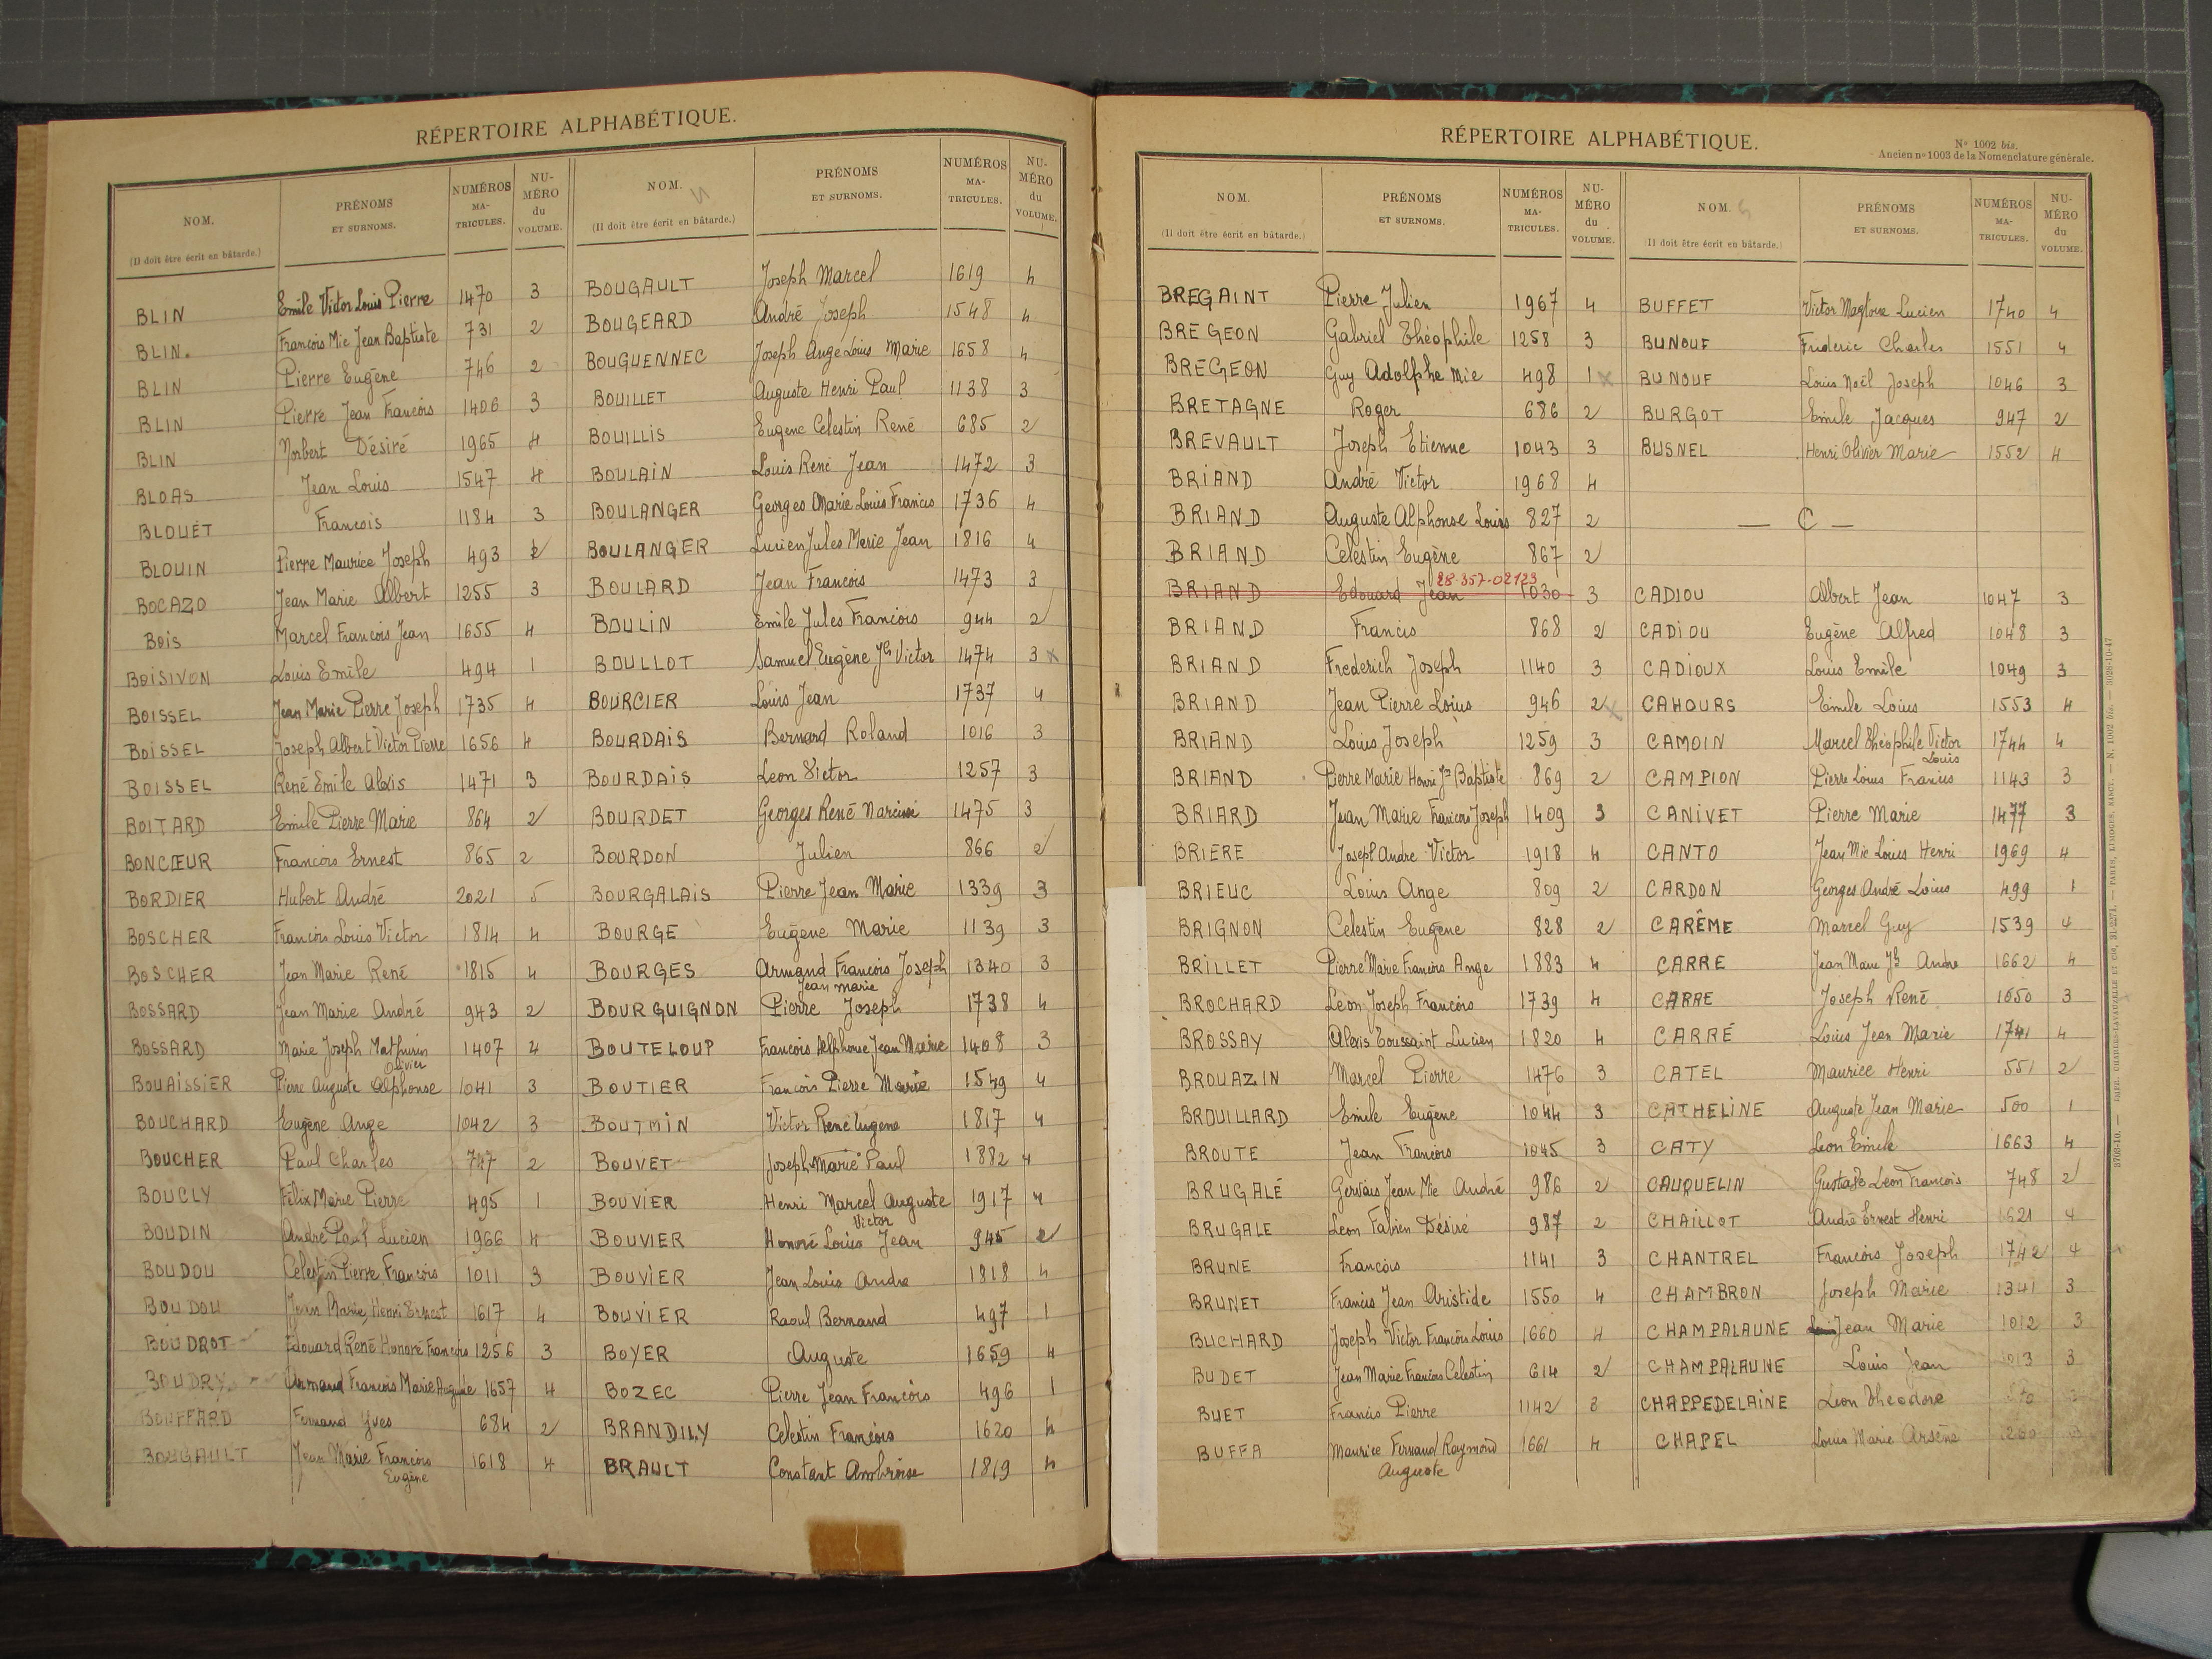 RÉPERTOIRE ALPHABÉTIQUE.
NOM. (Il doit être écrit en bâtarde.) PRÉNOMS ET SURNOMS. NUMÉROS MA-TRICULES. NU-MÉRO du VOLUME.
BLIN Emile Victor Louis Pierre 1470 3
BLIN. François Mie Jean Baptiste 731 2
BLIN Pierre Eugène 746 2
BLIN Pierre Jean François 1406 3
BLIN Norbert Désiré 1965 4
BLOAS Jean Louis 1547 4
BLOUET François 1184 3
BLOUIN Pierre Maurice Joseph 493
BOCAZO Jean Marie Albert 1255 3
BOIS Marcel François Jean 1655 4
BOISIVON Louis Emile 494 1
BOISSEL Jean Marie Pierre Joseph 1735 4
BOISSEL Joseph Albert Victor Pierre 1656 4
BOISSEL René Emile Alexis 1471 3
BOITARD Emile Pierre Marie 864 2
BONCŒUR François Ernest 865 2
BORDIER Hubert André 2021 5
BOSCHER François Louis Victor 1814 4
BOSCHER Jean Marie René 1815 4
BOSSARD Jean Marie André 943 2
BOSSARD Marie Joseph Mathurin Olivier 1407 4
BOUAISSIER Pierre Auguste Alphonse 1041 3
BOUCHARD Eugène Ange 1042 3
BOUCHER Paul Charles 747 2
BOUCLY Félix Marie Pierre 495 1
BOUDIN André Paul Lucien 1966 4
BOUDOU Celestin Pierre François 1011 3
BOUDOU Jean Marie Henri Ernest 1617 4
BOUDROT Edouard René Honoré François 1256 3
BOUDRY Armand François Marie Auguste 1657 4
BOUFFARD Fernand Yves 684 2
BOUGAULT Jean Marie François Eugène 1618 4
NOM. (Il doit être écrit en bâtarde.) PRÉNOMS ET SURNOMS. NUMÉROS MA-TRICULES. NU-MÉRO du VOLUME.
BOUGAULT Joseph Marcel 1619 4
BOUGEARD André Joseph 1548 4
BOUGUENNEC Joseph Ange Louis Marie 1658 4
BOUILLET Auguste Henri Paul 1138 3
BOUILLIS Eugene Celestin René 685 2
BOULAIN Louis René Jean 1472 3
BOULANGER Georges Marie Louis Francis 1736 4
BOULANGER Lucien Jules Marie Jean 1816 4
BOULARD Jean François 1473 3
BOULIN Emile Jules François 944 2
BOULLOT Samuel Eugène Jh Victor 1474 3 x
BOURCIER Louis Jean 1737 4
BOURDAIS Bernard Roland 1016 3
BOURDAIS Leon Victor 1257 3
BOURDET Georges René Narcisse 1475 3
BOURDON Julien 866 2
BOURGALAIS Pierre Jean Marie 1339 3
BOURGE Eugène Marie 1139 3
BOURGES Armand François Joseph Jean Marie 1340 3
BOURGUIGNON Pierre Joseph 1738 4
BOUTELOUP François Alphonse Jean Marie 1408 3
BOUTIER François Pierre Marie 1549 4
BOUTMIN Victor René Eugene 1817 4
BOUVET Joseph Marie Paul 1882 4
BOUVIER Henri Marcel Auguste 1917 4
BOUVIER Honoré Louis Victor Jean 945 2
BOUVIER Jean Louis Andre 1818 4
BOUVIER Raoul Bernand 497 1
BOYER Auguste 1659 4
BOZEC Pierre Jean François 496 1
BRANDILY Celestin François 1620 4
BRAULT Constant Ambroise 1819 4
RÉPERTOIRE ALPHABÉTIQUE.
N° 1002 bis.
Ancien n° 1003 de la Nomenclature générale.
NOM. (Il doit être écrit en bâtarde.) PRÉNOMS ET SURNOMS. NUMÉROS MA-TRICULES. NU-MÉRO du VOLUME.
BREGAINT Pierre Julien 1967 4
BREGEON Gabriel Théophile 1258 3
BREGEON Guy Adolphe Mie 498 1 x
BRETAGNE Roger 686 2
BREVAULT Joseph Etienne 1043 3
BRIAND André Victor 1968 4
BRIAND Auguste Alphonse Louis 827 2
BRIAND Celestin Eugène 867 2
28-357-02123
BRIAND Edouard Jean 1030 3
BRIAND Francis 868 2
BRIAND Frederich Joseph 1140 3
BRIAND Jean Pierre Louis 946 2 x
BRIAND Louis Joseph 1259 3
BRIAND Pierre Marie Henri Jn Baptiste 869 2
BRIARD Jean Marie François Joseph 1409 3
BRIERE Joseph Andre Victor 1918 4
BRIEUC Louis Ange 809 2
BRIGNON Celestin Eugene 828 2
BRILLET Pierre Marie François Ange 1883 4
BROCHARD Leon Joseph François 1739 4
BROSSAY Alexis Toussaint Lucien 1820 4
BROUAZIN Marcel Pierre 1476 3
BROUILLARD Emile Eugène 1044 3
BROUTE Jean François 1045 3
BRUGALÉ Gervais Jean Mie André 986 2
BRUGALE Leon Fabien Désiré 987 2
BRUNE François 1141 3
BRUNET Francis Jean Aristide 1550 4
BUCHARD Joseph Victor François Louis 1660 4
BUDET Jean Marie François Celestin 614 2
BUET Francis Pierre 1142 3
BUFFA Maurice Fernand Raymond Auguste 1661 4
NOM. (Il doit être écrit en bâtarde.) PRÉNOMS ET SURNOMS. NUMÉROS MA-TRICULES. NU-MÉRO du VOLUME.
BUFFET Victor Magloire Lucien 1740 4
BUNOUF Frederic Charles 1551 4
BUNOUF Louis Noël Joseph 1046 3
BURGOT Emile Jacques 947 2
BUSNEL Henri Olivier Marie 1552 4
— C —
CADIOU Albert Jean 1047 3
CADIOU Eugène Alfred 1048 3
CADIOUX Louis Emile 1049 3
CAHOURS Emile Louis 1553 4
CAMOIN Marcel Théophile Victor Louis 1744 4
CAMPION Pierre Louis Francis 1143 3
CANIVET Pierre Marie 1477 3
CANTO Jean Mie Louis Henri 1969 4
CARDON Georges André Louis 499 1
CARÊME Marcel Guy 1539 4
CARRE Jean Marie Jh Andre 1662 4
CARRE Joseph René 1050 3
CARRÉ Louis Jean Marie 1741 4
CATEL Maurice Henri 551 2
CATHELINE Auguste Jean Marie 500 1
CATY Leon Emile 1663 4
CAUQUELIN Gustave Léon François 748 2
CHAILLOT André Ernest Henri 1621 4
CHANTREL François Joseph 1742 4
CHAMBRON Joseph Marie 1341 3
CHAMPALAUNE Jean Marie 1012 3
CHAMPALAUNE Louis Jean 1013 3
CHAPPEDELAINE Léon Théodore
CHAPEL Louis Marie Arsène